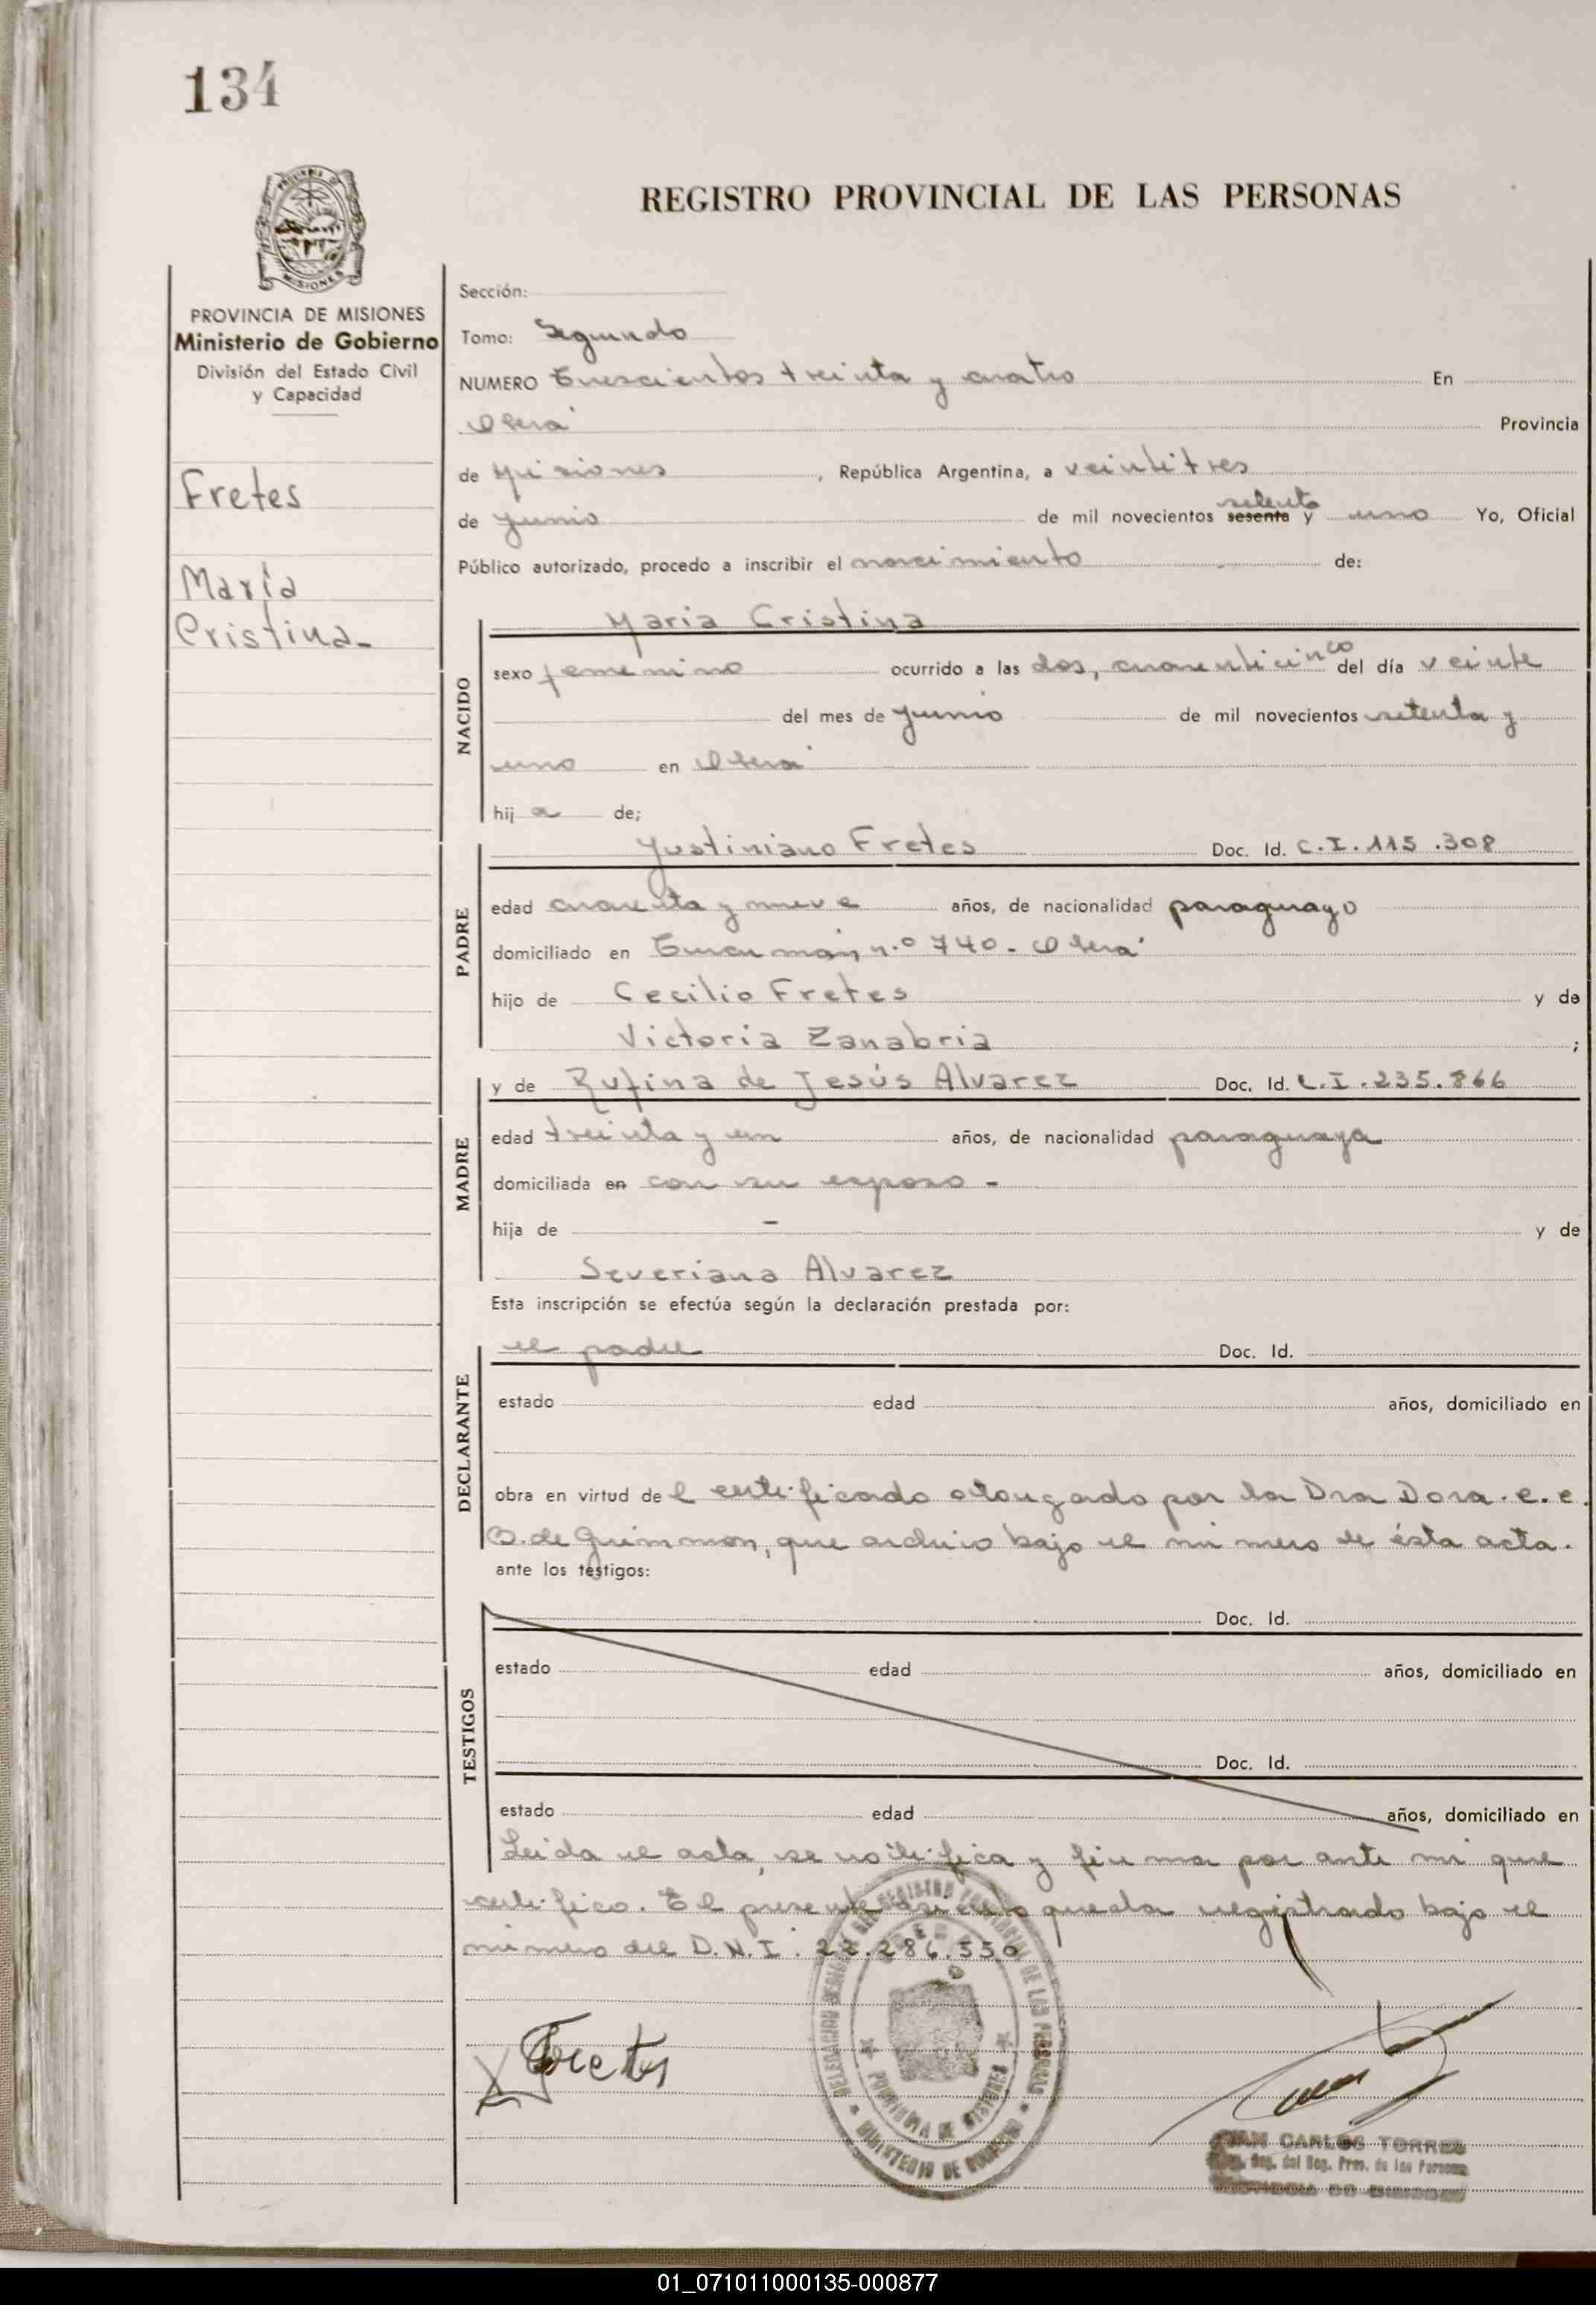 134
REGISTRO PROVINCIAL DE LAS PERSONAS
MISIONES
PROVINCIA DE MISIONES
Ministerio de Gobierno
División del Estado Civil
y Capacidad
Fretes
María
Cristina-
Sección:
Tomo: Segundo
NUMERO Trescientos treinta y cuatro En
Oberá Provincia
de Misiones, República Argentina, a veintitres
setenta
de Junio de mil novecientos sesenta y uno Yo, Oficial
Público autorizado, procedo a inscribir el nacimiento de:
NACIDO
Maria Cristina
sexo femenino ocurrido a las dos, cuarenticinco del día veinte
del mes de Junio de mil novecientos setenta y
uno en Oberá
hij a de;
PADRE
Justiniano Fretes Doc. Id. C.I. 115.308
edad cuarenta y nueve años, de nacionalidad paraguayo
domiciliado en Tucumán n.º 740. Oberá
hijo de Cecilio Fretes y de
Victoria Zanabria ;
MADRE
y de Rufina de Jesús Alvarez Doc. Id. C.I. 235.866
edad treinta y un años, de nacionalidad paraguaya
domiciliada en con su esposo -
hija de - y de
Severiana Alvarez
Esta inscripción se efectúa según la declaración prestada por:
DECLARANTE
el padre Doc. Id.
estado edad años, domiciliado en
obra en virtud de l certificado otorgado por la Dra Dora. e. e.
B. de Grimmon, que archivo bajo el número de ésta acta.
ante los testigos:
TESTIGOS
Doc. Id.
estado edad años, domiciliado en
Doc. Id.
estado edad años, domiciliado en
Leida el acta, se ratifica y firma por ante mi que
certifico. El presente asiento queda registrado bajo el
número del D.N.I. 22.286.550
Fretes
PROVINCIA DE MISIONES
MINISTERIO DE GOBIERNO
JUAN CARLOS TORRES
Reg. del Reg. Prov. de las Personas
PROVINCIA DE MISIONES
01_071011000135-000877